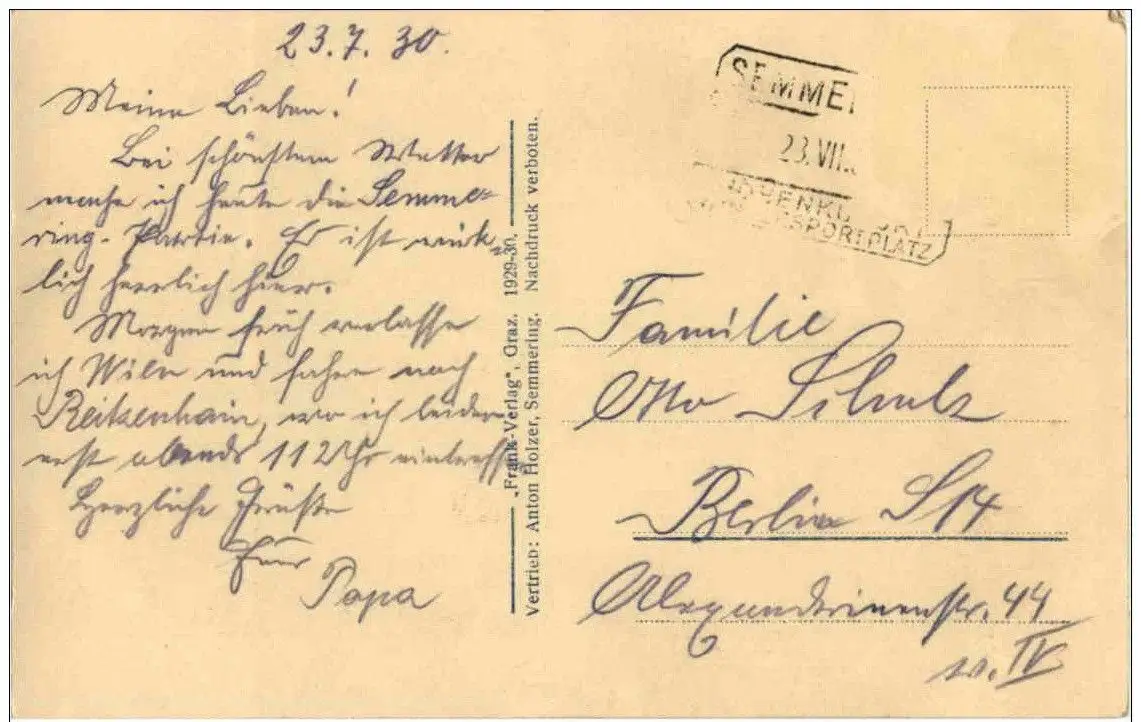 23.7.30.
Meine Lieben!
Bei schönstem Wetter
mache ich heute die Semme-
ring-Partie. Es ist wirk-
lich herrlich hier.
Morgen früh verlasse
ich Wien und fahre nach
Reitzenhain, wo ich leider
erst abends 11 Uhr eintreffe.
Herzliche Grüße
Euer
Papa
„Frank-Verlag“, Graz. 1929-30.
Vertrieb: Anton Holzer, Semmering. Nachdruck verboten.
SEMME
23.VII.
SPORTPLATZ
Familie
Otto Schulz
Berlin S14
Alexandrinenstr. 44
IV